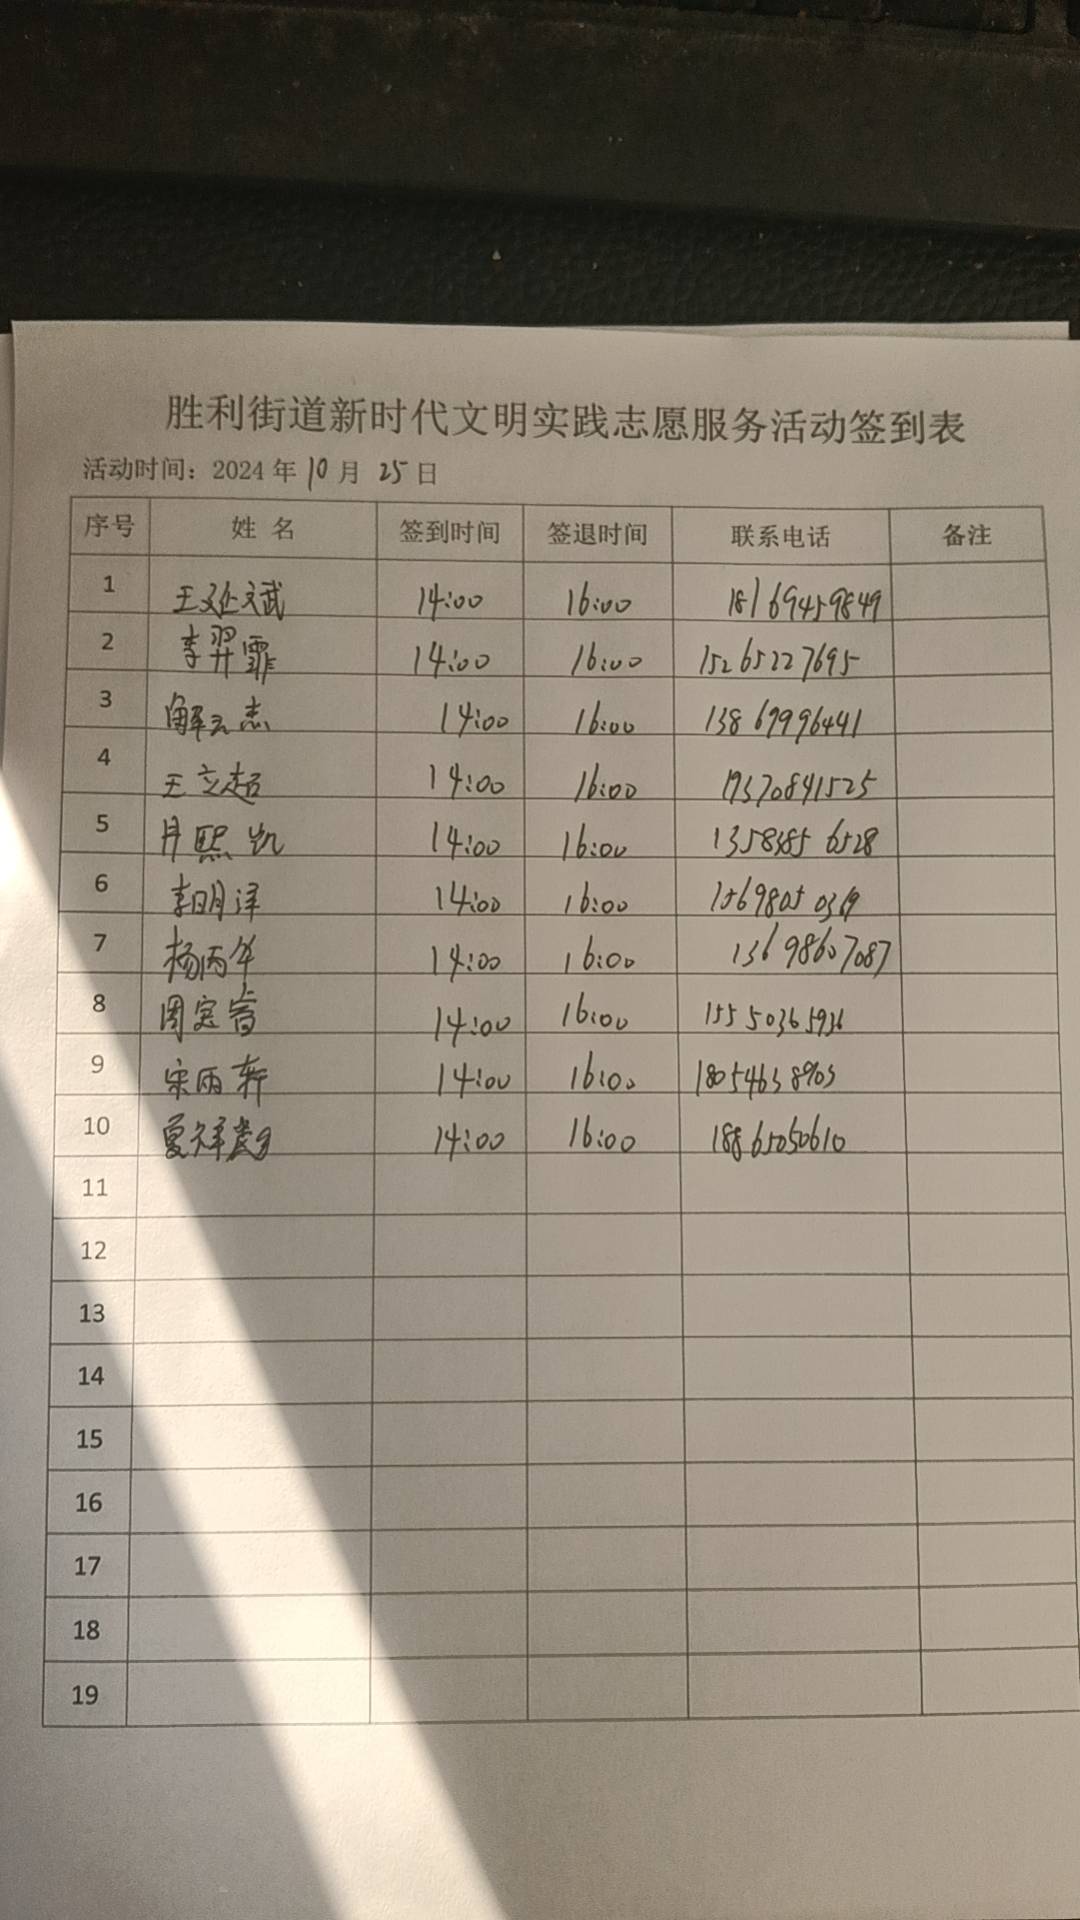 胜利街道新时代文明实践志愿服务活动签到表
活动时间：2024 年 10 月 25 日
序号 姓名 签到时间 签退时间 联系电话 备注
1 14:00 16:00 18169459849
2 李羿霏 14:00 16:00 15265227695
3 解云志 14:00 16:00 13869996441
4 王立超 14:00 16:00 19370841525
5 14:00 16:00
6 李明洋 14:00 16:00
7 杨丙午 14:00 16:00 13698607087
8 14:00 16:00 15550365936
9 宋雨轩 14:00 16:00 18054638903
10 14:00 16:00 18865050610
11
12
13
14
15
16
17
18
19